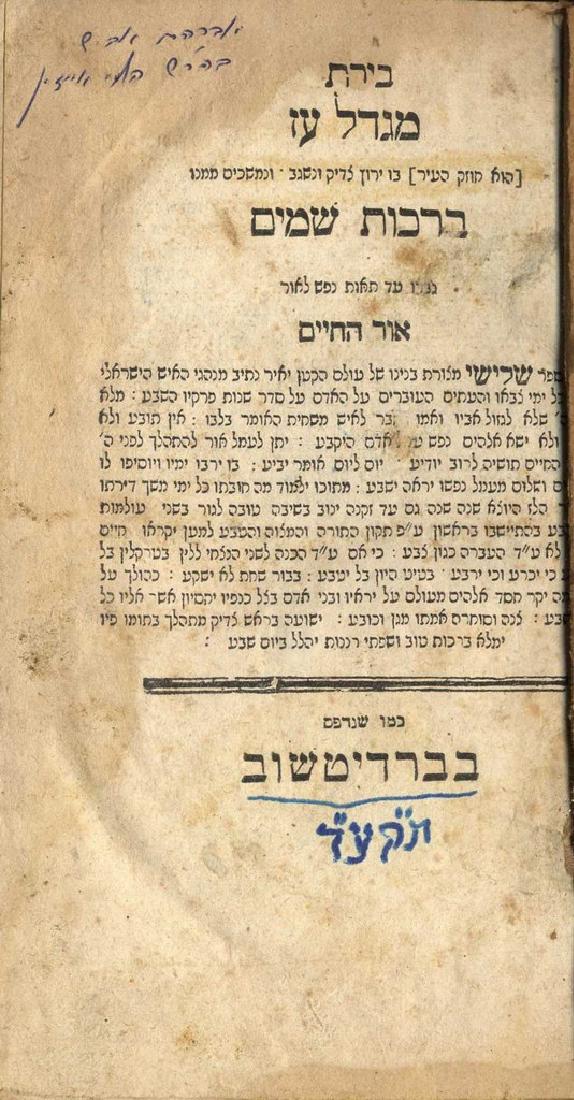 אברהם
בירת
מגדל עז
[הוא חוזק העיר] בו ירוץ צדיק ונשגב · ונמשכים ממנו
ברכות שמים
עד תאות נפש לאור
אור החיים
ספר שלישי מצורת בנינו של עולם הקטן יאיר נתיב מנהגי האיש הישראלי
כל ימי צבאו והעתים העוברים על האדם על סדר שנות פרקיו השבע : מלא
שלא לגזול אביו ואמו חבר לאיש משחית האומר בלבו : אין תובע ולא
ולא ישא אלהים נפש אדם היקבע : יתן לעמל אור להתהלך לפני ה'
החיים תושיה לרוב יודיע יום ליום אומר יביע : בן ירבו ימיו ויוסיפו לו
ושלום מעמל נפשו יראה ישבע : מתוכו ילמוד מה חובתו כל ימי משך דירתו
הלז היוצא שנה שנה גם עד זקנה ינוב בשיבה טובה לגור בשני עולמות
בהתיישבו בראשון ע"פ תקון התורה והמצוה והטבע למען יקראו חיים
לא ע"ד העברה כגון צבע : כי אם ע"ד הכנה לשני הנצחי ללין בטרקלין בל
כי יכרע וכי ירבע · בטיט היון בל יטבע : בבור שחת לא ישקע : כהולך על
מה יקר חסד אלהים מעולם על יראיו ובני אדם בצל כנפיו יחסיון אשר אליו כל
שבע : צנה וסוחרה אמתו מגן וכובע : ישועה בראש צדיק מתהלך בתומו פיו
ימלא ברכות טוב ושפתי רננות יהלל ביום שבע :
כמו שנדפס
בברדיטשוב
תקע"ד